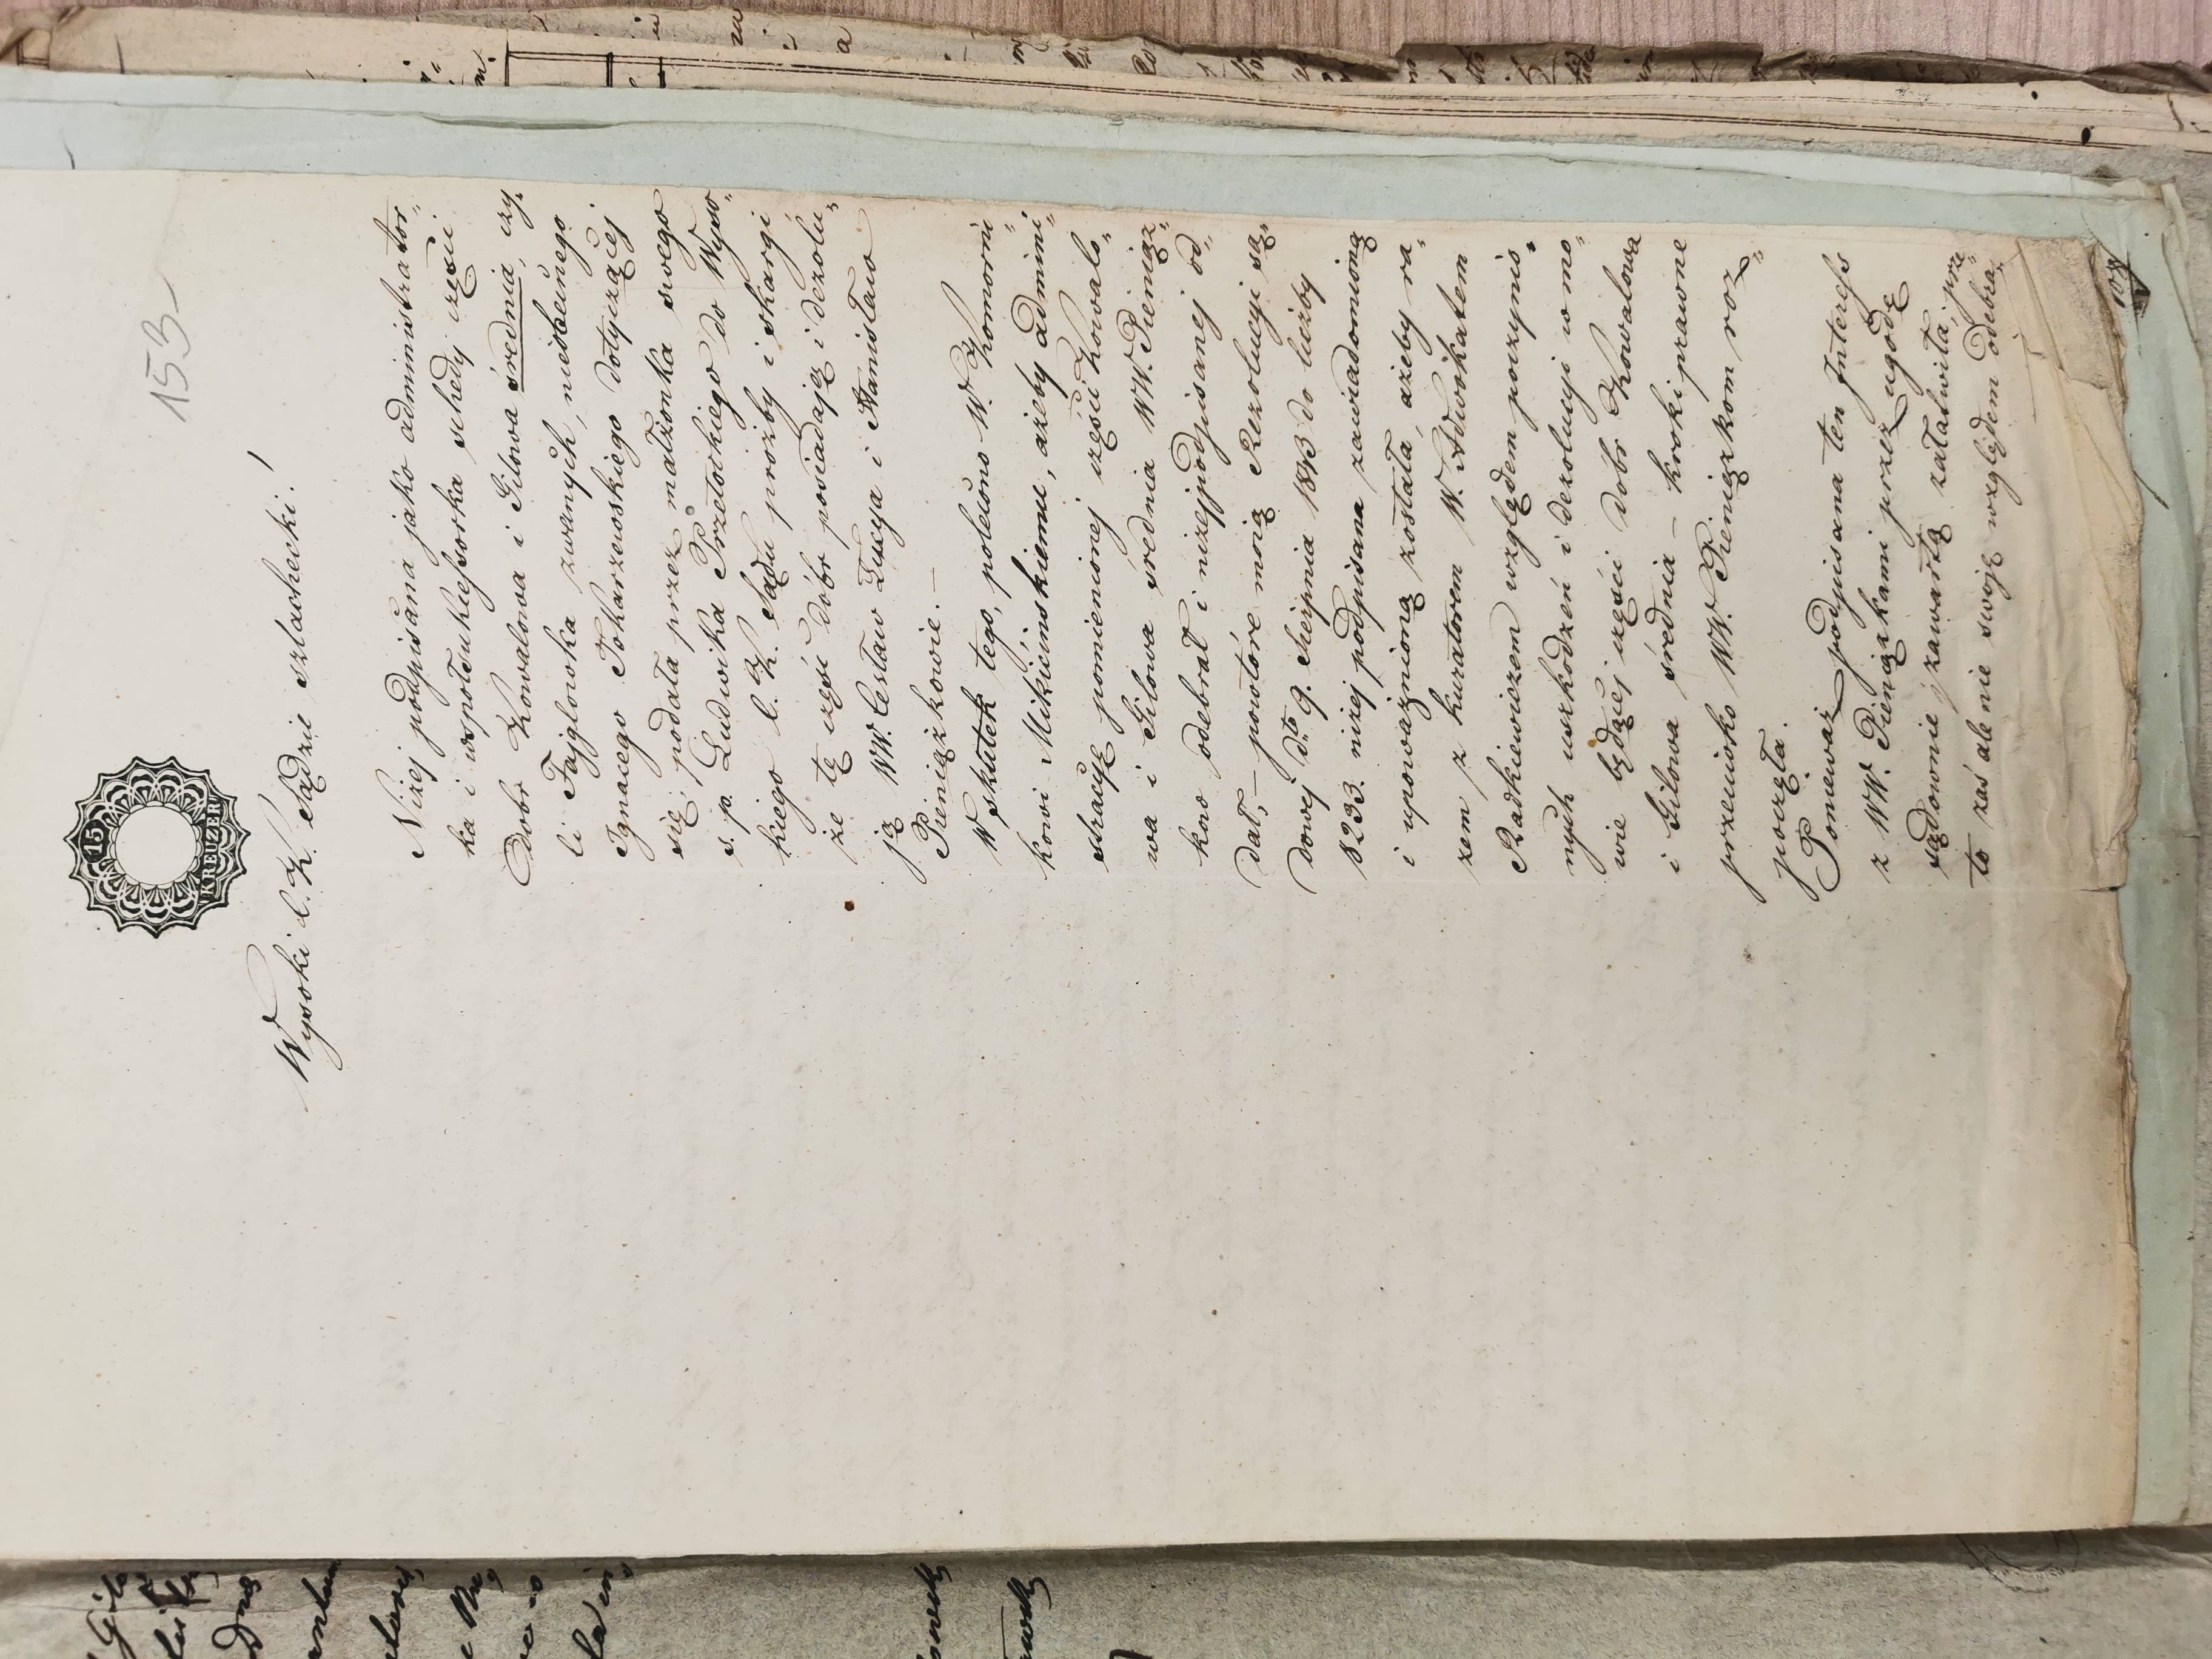 153
15
KREUZER
Wysoki C. K. Sądzie szlachecki!
Niżej podpisana jako administrator„
ka i wspołsukcessorka schedy części
Dobr Kowalowa i Gilowa średnia, czy„
li Fajglowska zwanych, nieściśnego
Ignacego Tokarzewskiego dotyczącej
się; podała przez małżonka swego
s. p. Ludwika Przetockiego do Wyso„
kiego C. K. Sądu prozby i skargi
że tę część dóbr posiadając i dezolu„
ją WW. Cesław Łucya i Stanisław
Pieniążkowie. —
W skutek tego, polecono W. Komorni„
kowi Mikicińskiemu, ażeby admini„
stracyę pomienionej części Kowalo„
wa i Gilowa średnia WW. Pieniąż„
kow odebrał i niżejpodpisanej od„
dał, — powtóre moią Rezolucyi są„
dowej dto 9. Sierpnia 1843 do liczby
8233. niżej podpisana zawiadomioną
i upoważnioną została, ażeby ra„
zem z kuratorem W. Adwokatem
Radkiewiczem względem poczynio„
nych uszkodzeń i dezolucyi w mo„
wie będącej części dobr Kowalowa
i Gilowa średnia — kroki prawne
przeciwko WW. Pieniążkom roz„
poczęła.
Ponieważ podpisana ten Interess
z WW. Pieniążkami przez ugodę
sądownie zawartą załatwiła, prze„
to zaś ale nie swoję względem odebra„